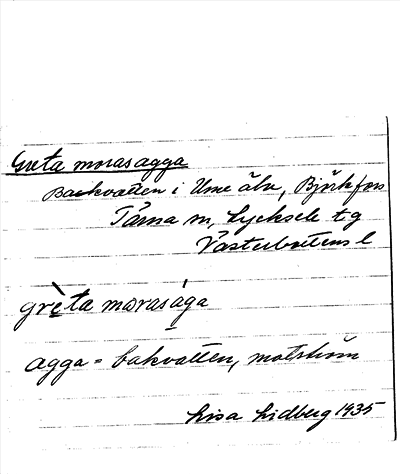 Greta morasagga
Backvatten i Ume älv, Björkfors
Tärna sn, Lycksele tg
Västerbottens l
grèta morasága
agga = bakvatten, motström
Lisa Lidberg 1935